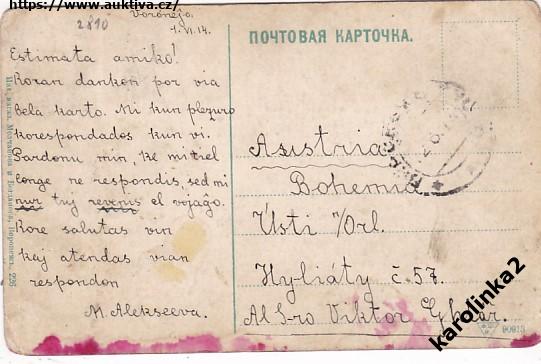 https://www.auktiva.cz/
2810
Voronejo.
1.VI.14.
Estimata amiko!
Koran dankon por via
bela karto. Mi kun plezuro
korespondados kun vi.
Pardonu min, ke mi tiel
longe ne respondis, sed mi
nur tuj revenis el vojago.
Kore salutas vin
kaj atendas vian
respondon
M. Alekseeva.
ПОЧТОВАЯ КАРТОЧКА.
Austria
Bohemia.
Ústi n/Orl.
Hyliáty č. 57.
Al S-ro Viktor
90915
karolinka2